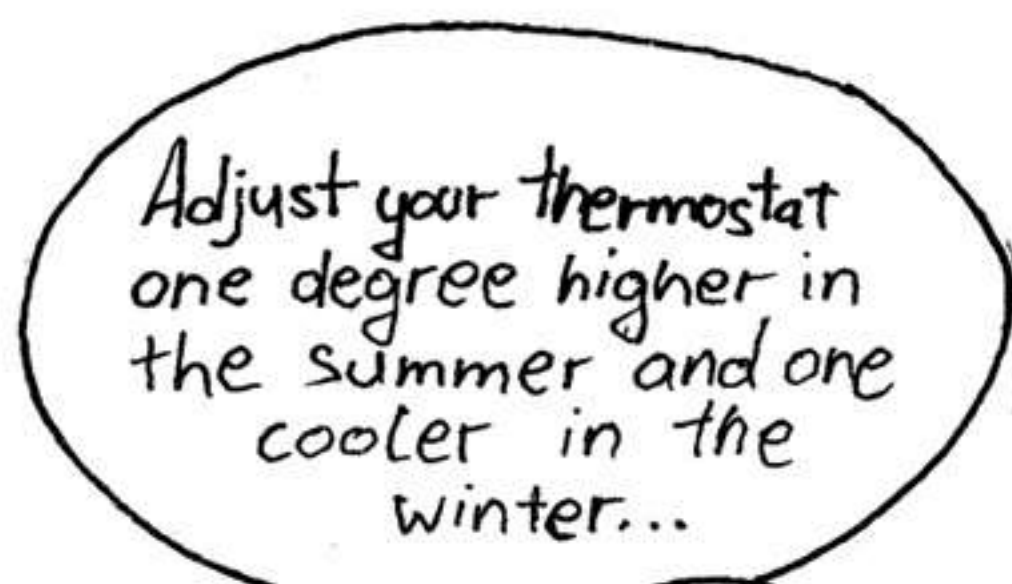 Adjust your thermostat
one degree higher in
the summer and one
cooler in the
winter...